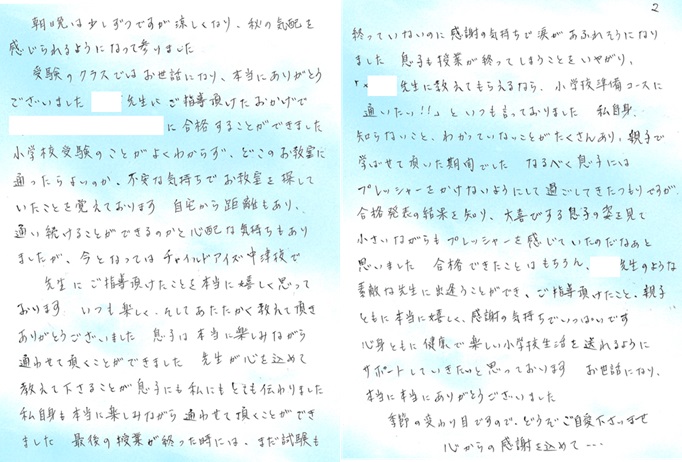 朝晩は少しずつですが涼しくなり、秋の気配を
感じられるようになって参りました
受験のクラスではお世話になり、本当にありがとう
ございました 先生にご指導頂けたおかげで
に合格することができました
小学校受験のことがよくわからず、どこのお教室に
通ったらよいのか、不安な気持ちでお教室を探して
いたことを覚えております 自宅から距離もあり、
通い続けることができるのかと心配な気持ちもあり
ましたが、今となってはチャイルドアイズ中津校で
先生にご指導頂けたことを本当に嬉しく思って
おります いつも楽しく、そしてあたたかく教えて頂き
ありがとうございました 息子は本当に楽しみながら
通わせて頂くことができました 先生が心を込めて
教えて下さることが息子にも私にもとても伝わりました
私自身も本当に楽しみながら通わせて頂くことができ
ました 最後の授業が終った時には、まだ試験も
2
終っていないのに感謝の気持ちで涙があふれそうになり
ました 息子も授業が終ってしまうことをいやがり、
「 先生に教えてもらえるなら、小学校準備コースに
通いたい!!」といつも言っておりました 私自身、
知らないこと、わかっていないことがたくさんあり、親子で
学ばせて頂いた期間でした なるべく息子には
プレッシャーをかけないようにして過ごしてきたつもりですが、
合格発表の結果を知り、大喜びする息子の姿を見て
小さいながらもプレッシャーを感じていたのだなぁと
思いました 合格できたことはもちろん、 先生のような
素敵な先生に出逢うことができ、ご指導頂けたこと、親子
ともに本当に嬉しく、感謝の気持ちでいっぱいです
心身ともに健康で楽しい小学校生活を送れるように
サポートしていきたいと思っております お世話になり、
本当に本当にありがとうございました
季節の変わり目ですので、どうぞご自愛下さいませ
心からの感謝を込めて…